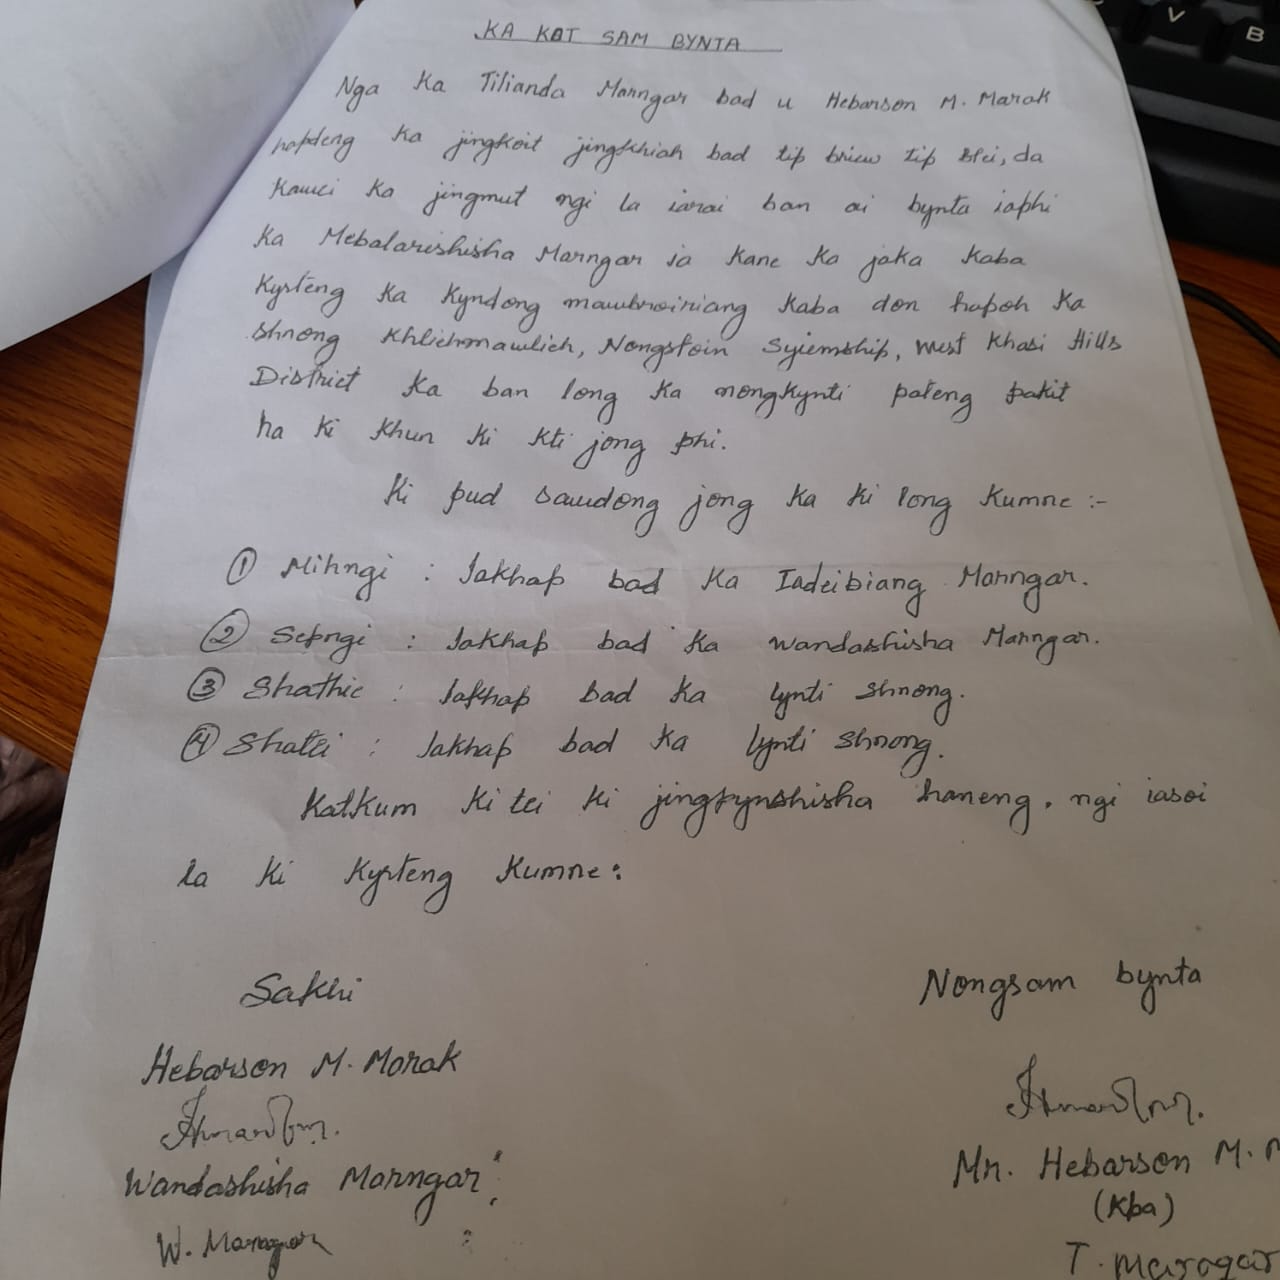 KA KOT SAM BYNTA
Nga Ka Tilianda Marngar bad u Hebarson M. Marak
hapdeng ka jingkoit jingkhiah bad tip briew tip Blei, da
Kawei Ka jingmut ngi la iarai ban ai bynta iaphi
Ka Mebalarishisha Marngar ia Kane Ka jaka Kaba
Kyrteng Ka Kyndong mawbroiriang Kaba don hapoh Ka
Shnong Khlichmawlich, Nongstoin Syiemship, West Khasi Hills
District Ka ban long Ka nongkynti pateng pakit
ha ki Khun Ki Kti jong phi.
Ki pud sawdong jong Ka Ki long Kumne :-
① Mihngi : Iakhap bad Ka Iadeibiang Marngar.
② Sepngi : Iakhap bad Ka Wandashisha Marngar.
③ Shathie : Iakhap bad Ka lynti Shnong.
④ Shatei : Iakhap bad Ka lynti Shnong.
Katkum Ki tei Ki jingkynshisha haneng, ngi iasoi
la Ki Kyrteng Kumne:
Sakhi Nongsam bynta
Hebarson M. Marak
Wandashisha Marngar Mr. Hebarson M.
(Kpa)
W. Marngar T. Marngar